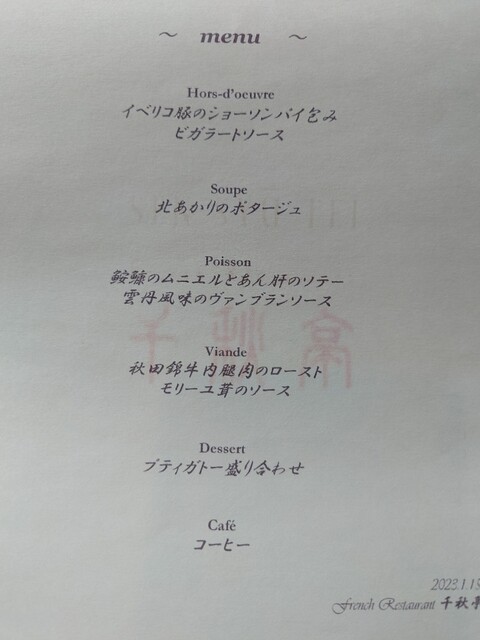 ~ menu ~
Hors-d'oeuvre
イベリコ豚のショーソンパイ包み
ビガラートソース
Soupe
北あかりのポタージュ
Poisson
鮟鱇のムニエルとあん肝のソテー
雲丹風味のヴァンブランソース
Viande
秋田錦牛内腿肉のロースト
モリーユ茸のソース
Dessert
プティガトー盛り合わせ
Café
コーヒー
2023.1.13
French Restaurant 千秋亭